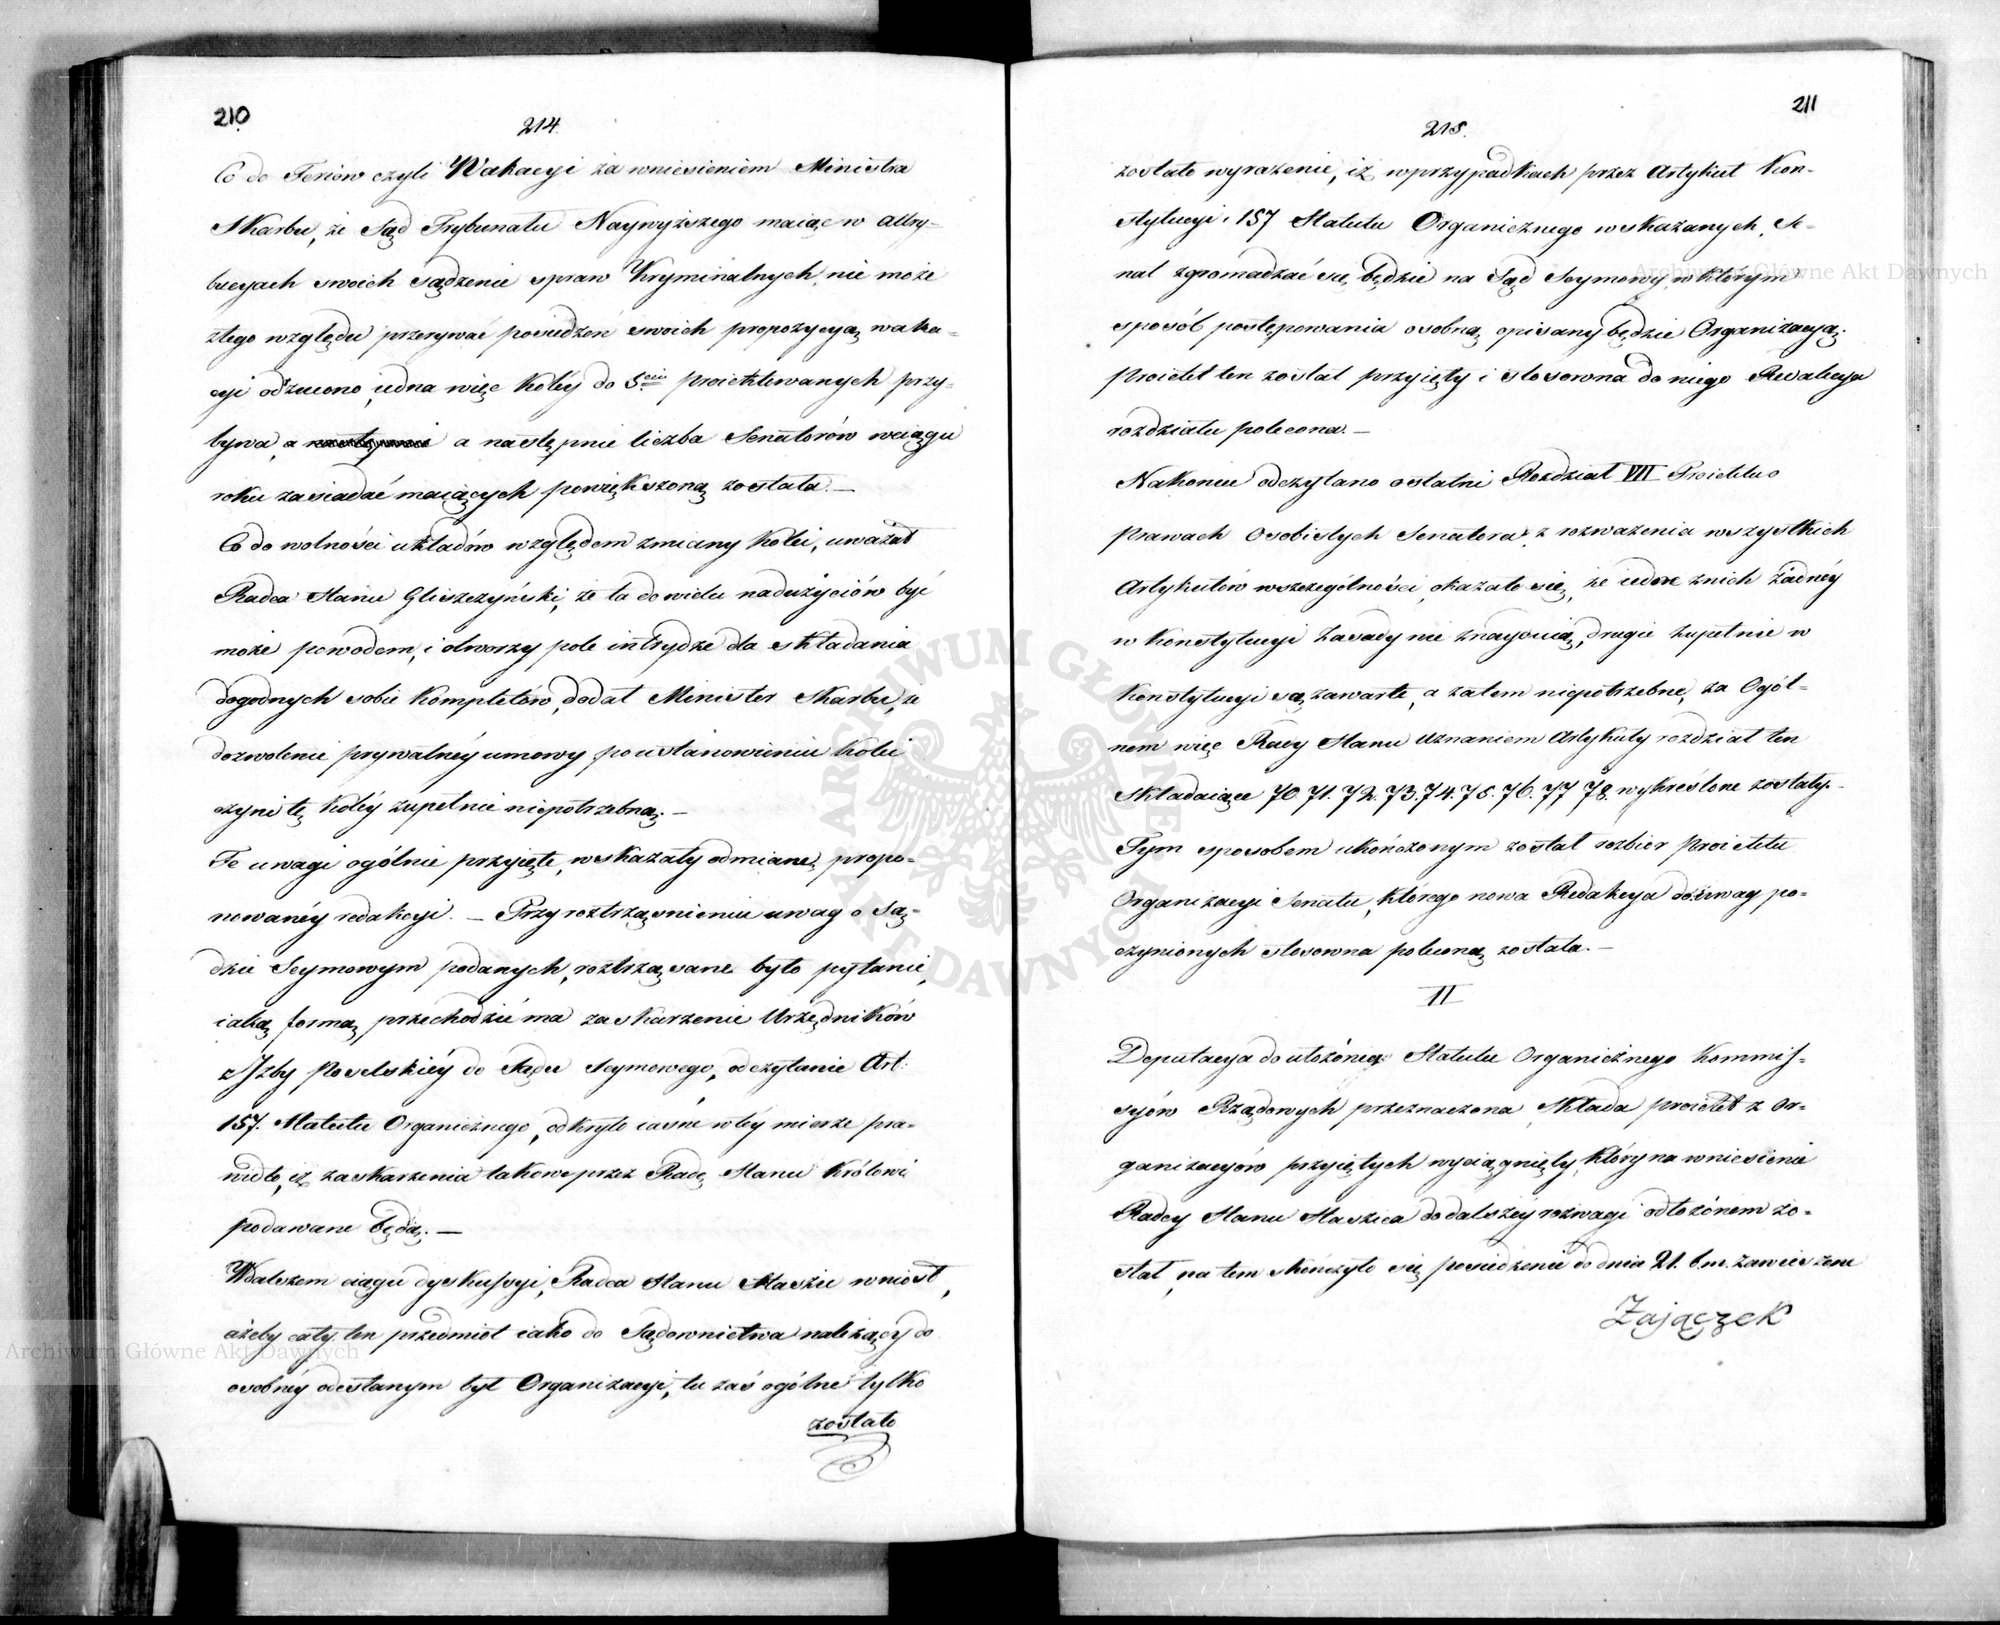 210
214.
Co do Feriów czyli Wakacyi za wniesieniem Ministra
Skarbu, że Sąd Trybunału Naywyższego maiąc w attry-
bucyach swoich sądzenie spraw Kryminalnych, nie może
ztego względu przerywać posiedzeń swoich propozycyą waka-
cyi odrzucono, iedna więc Koley do 5ciu proiektowanych przy-
bywa, a a następnie liczba Senatorów wciągu
roku zasiadać maiących powiększoną została. —
Co do wolności układów względem zmiany Kolei, uważał
Radca Stanu Gliszczyński, że ta do wielu nadużyciów być
może powodem, i otworzy pole intrydze dla składania
dogodnych sobie Kompletów, dodał Minister Skarbu, że
dozwolenie prywatnéy umowy po ustanowieniu Kolei
czyni tę Koléy zupełnie niepotrzebną. —
Te uwagi ogólnie przyięte, wskazały odmianę propo-
nowanéy redakcyi. — Przy roztrząśnieniu uwag o Są-
dzie Seymowym podanych, roztrząsane było pytanie,
iaką formą przechodzić ma zaskarżenie Urzędników
z Izby Poselskiéy do Sądu Seymowego, odczytanie Art.
157. Statutu Organicznego, odkryło iasne wtéy mierze pra-
widło, iż zaskarżenia takowe przez Radę Stanu Królowi
podawane będą. —
Wdalszem ciągu dyskussyi, Radca Stanu Staszic wniósł,
ażeby cały ten przedmiot iako do Sądownictwa należący do
osobnéy odesłanym był Organizacyi, tu zaś ogólne tylko
zostało
211
215.
zostało wyrażenie, iż wprzypadkach przez Artykuł Kon-
stytucyi i 157 Statutu Organicznego wskazanych, Se-
nat zgromadzać się będzie na Sąd Seymowy, w którym
sposób postępowania osobną opisany będzie Organizacyą.
Proiekt ten został przyięty i stosowna do niego Redakcya
rozdziału polecona. —
Nakoniec odczytano ostatni Rozdział VII Proiektu o
Prawach Osobistych Senatora, z rozważenia wszystkich
Artykułów wszczególności, okazało się, że iedne znich żadnéy
w Konstytucyi Zasady nie znayduią, drugie zupełnie w
Konstytucyi są zawarte, a zatem niepotrzebne, za Ogól-
nem więc Rady Stanu uznaniem Artykuły rozdział ten
składaiące 70 71. 72. 73. 74. 75. 76. 77 78. wykreślone zostały. —
Tym sposobem ukończonym został rozbiór Proiektu
Organizacyi Senatu, którego nowa Redakcya do uwag po-
czynionych stosowna poleconą została. —
II
Deputacya do ułożenia Statutu Organicznego Kommis-
syów Rządowych przeznaczona, składa proiekt z Or-
ganizacyów przyiętych wyciągnięty, który na wniesienie
Radcy Stanu Staszica do dalszéy rozwagi odłożonem zo-
stał, na tem skończyło się posiedzenie do dnia 21. b.m. zawieszone
Zajączek
Archiwum Główne Akt Dawnych
Archiwum Główne Akt Dawnych
ARCHIWUM GŁÓWNE AKT DAWNYCH